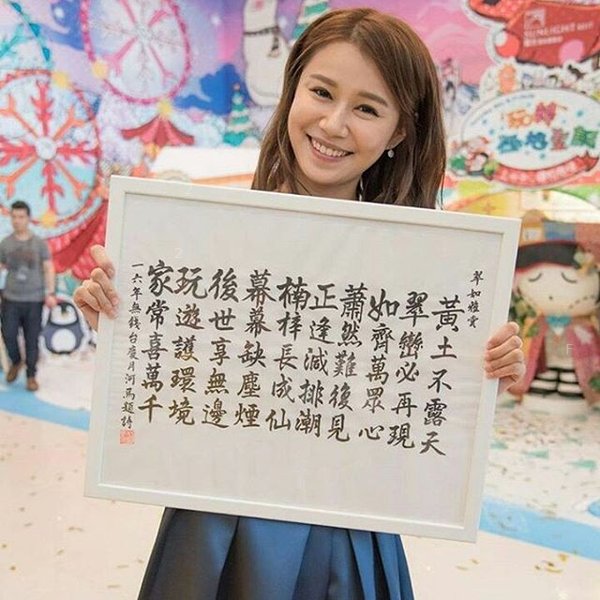 翠如雅賞
黃土不露天
翠巒必再現
如齊萬眾心
蕭然難後見
正逢減排潮
楠梓長成仙
幕幕缺塵煙
後世享無邊
玩遊護環境
家常喜萬千
一六年無錢台慶月河馬題詩
SUNLIGHT REIT